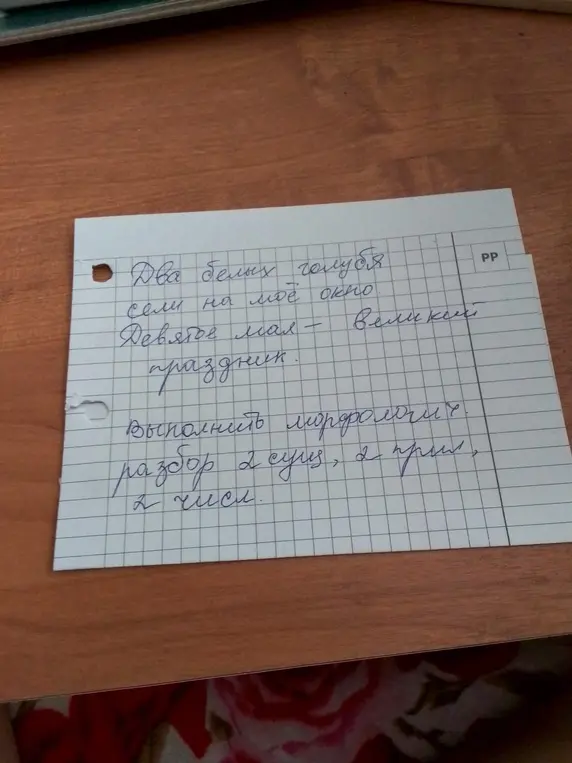 PP
Два белых голубя
сели на моё окно
Девятое мая – великий
праздник.
Выполнить морфологич.
разбор 2 сущ, 2 прил,
2 числ.